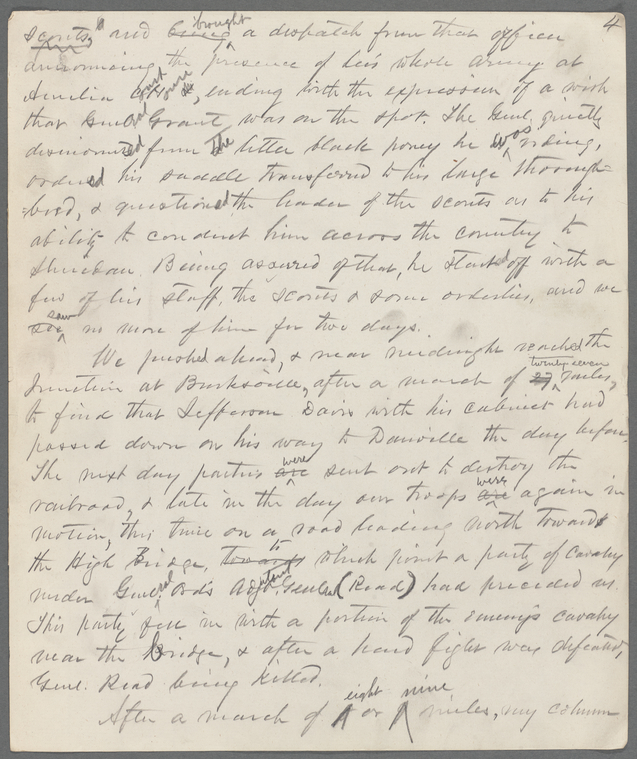 4
scouts, and brought a dispatch from that officer
announcing the presence of Lee's whole army at
Amelia Court House, ending with the expression of a wish
that Genl Grant was on the spot. The Genl. quietly
dismounted from the little black poney he was riding,
ordered his saddle transferred to his large thorough-
=bred, & questioned the leader of the scouts as to his
ability to conduct him across the country to
Sheridan. Being assured of that, he started off with a
few of his staff, the scouts & some orderlies, and we
saw no more of him for two days.
We pushed ahead, & near midnight reached the
Junction at Burksville, after a march of twenty-seven miles,
to find that Jefferson Davis with his cabinet had
passed down on his way to Danville the day before.
The next day parties were sent out to destroy the
railroad, & late in the day our troops were again in
motion, this time on a road leading north toward
the High Bridge, to which point a party of cavalry
under General Ord's Adjutant General (Read) had preceded us.
This party fell in with a portion of the enemy's cavalry
near the bridge, & after a hard fight was defeated,
Genl. Read being killed.
After a march of eight or nine miles, my column